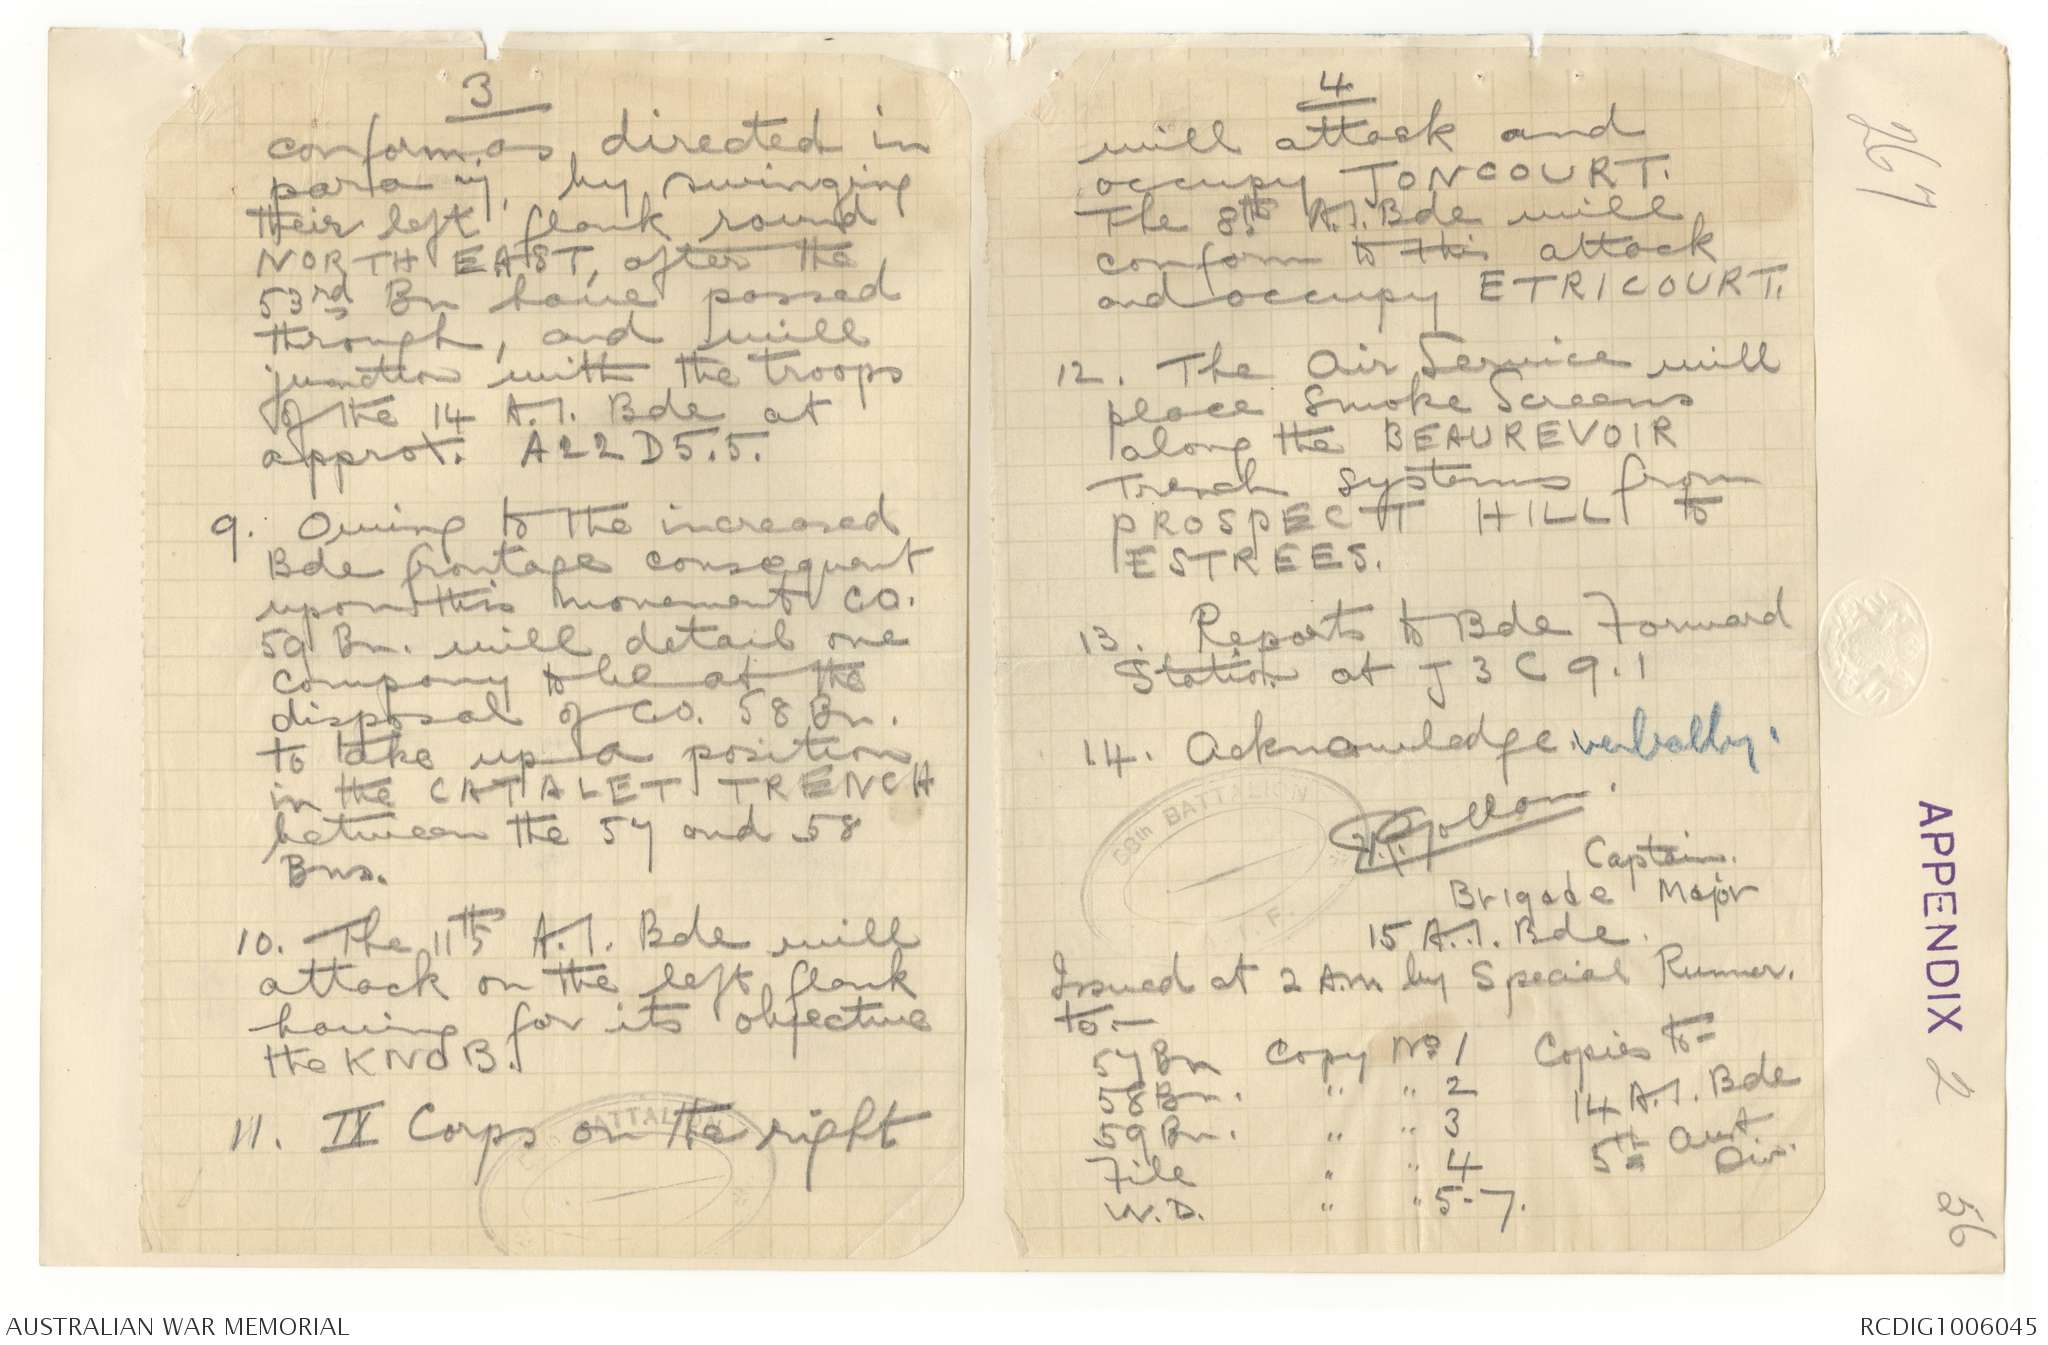 3
conform, as directed in
para 7, by swinging
their left flank round
NORTH EAST, after the
53rd Bn have passed
through, and will
junction with the troops
of the 14 A.I. Bde at
approx. A22D5.5.
9. Owing to the increased
Bde frontage consequent
upon this movement CO.
59 Bn. will detail one
company to be at the
disposal of CO. 58 Bn.
to take up a position
in the CATALET TRENCH
between the 57 and 58
Bns.
10. The 11th A.I. Bde will
attack on the left flank
having for its objective
the KNOB.
11. IX Corps on the right
BATTALION
4
will attack and
occupy JONCOURT.
The 8th A.I. Bde will
conform to this attack
and occupy ETRICOURT.
12. The Air Service will
place Smoke Screens
along the BEAUREVOIR
Trench Systems from
PROSPECT HILL to
ESTREES.
13. Reports to Bde Forward
Station at J3C9.1
14. Acknowledge verbally.
58th BATTALION
I.F.
Captain.
Brigade Major
15 A.I. Bde.
Issued at 2 A.m by Special Runner.
to:-
57 Bn Copy No 1 Copies to=
58 Bn. " " 2 14 A.I. Bde
59 Bn. " " 3 5th Aust. Div.
File " " 4
W.D. " " 5-7.
267
APPENDIX 2
56
AUSTRALIAN WAR MEMORIAL
RCDIG1006045